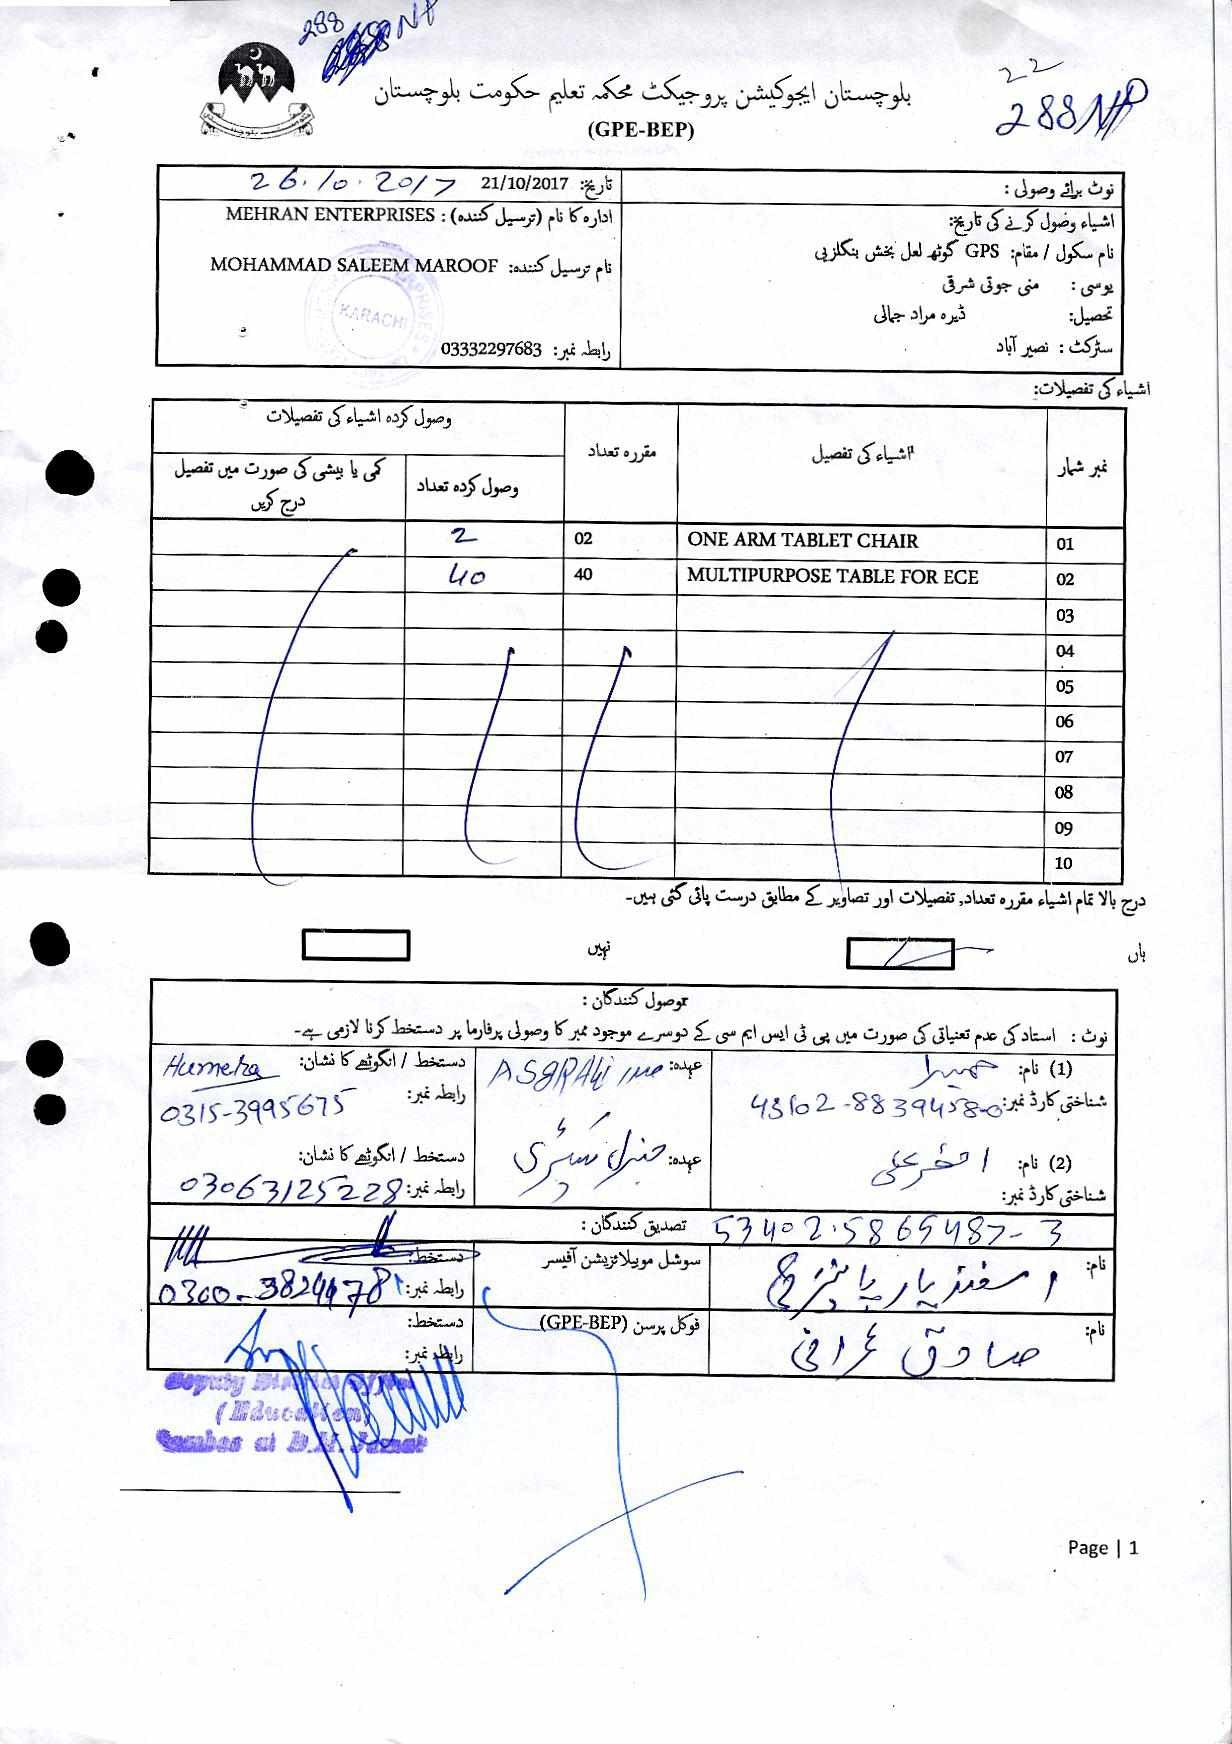 288
288 NP
22
288 NP
بلوچستان ایجوکیشن پروجیکٹ محکمہ تعلیم حکومت بلوچستان
(GPE-BEP)
نوٹ برائے وصولی :
تاریخ: 21/10/2017 26.10.2017
اشیاء وصول کرنے کی تاریخ:
نام سکول / مقام: GPS گوٹھ لعل بخش بنگلزئی
یوسی : منی جوتی شرقی
تحصیل: ڈیرہ مراد جمالی
سٹرکٹ : نصیر آباد
ادارہ کا نام (ترسیل کنندہ) : MEHRAN ENTERPRISES
نام ترسیل کنندہ: MOHAMMAD SALEEM MAROOF
KARACHI
رابطہ نمبر: 03332297683
اشیاء کی تفصیلات:
نمبر شمار اشیاء کی تفصیل مقررہ تعداد وصول کردہ اشیاء کی تفصیلات
وصول کردہ تعداد کمی یا بیشی کی صورت میں تفصیل درج کریں
01 ONE ARM TABLET CHAIR 02 2
02 MULTIPURPOSE TABLE FOR ECE 40 40
03
04
05
06
07
08
09
10
درج بالا تمام اشیاء مقررہ تعداد, تفصیلات اور تصاویر کے مطابق درست پائی گئی ہیں۔
ہاں نہیں
موصول کنندگان :
نوٹ : استاد کی عدم تعیناتی کی صورت میں پی ٹی ایس ایم سی کے دوسرے موجود ممبر کا وصولی پرفارما پر دستخط کرنا لازمی ہے۔
(1) نام: حمیرا عہدہ: صدر ASGRALI دستخط / انگوٹھے کا نشان: Humera
شناختی کارڈ نمبر: 43102-8839458-0 رابطہ نمبر: 0315-3995675
(2) نام: اصغر علی عہدہ: جنرل سیکٹری دستخط / انگوٹھے کا نشان:
شناختی کارڈ نمبر: رابطہ نمبر: 03063125228
تصدیق کنندگان : 53402.5865487-3
نام: اسفند یار سوشل موبیلائزیشن آفیسر دستخط:
رابطہ نمبر:
نام: صادق عمرانی فوکل پرسن (GPE-BEP) دستخط:
رابطہ نمبر:
Deputy
(Education)
at D.M. Jamali
Page | 1